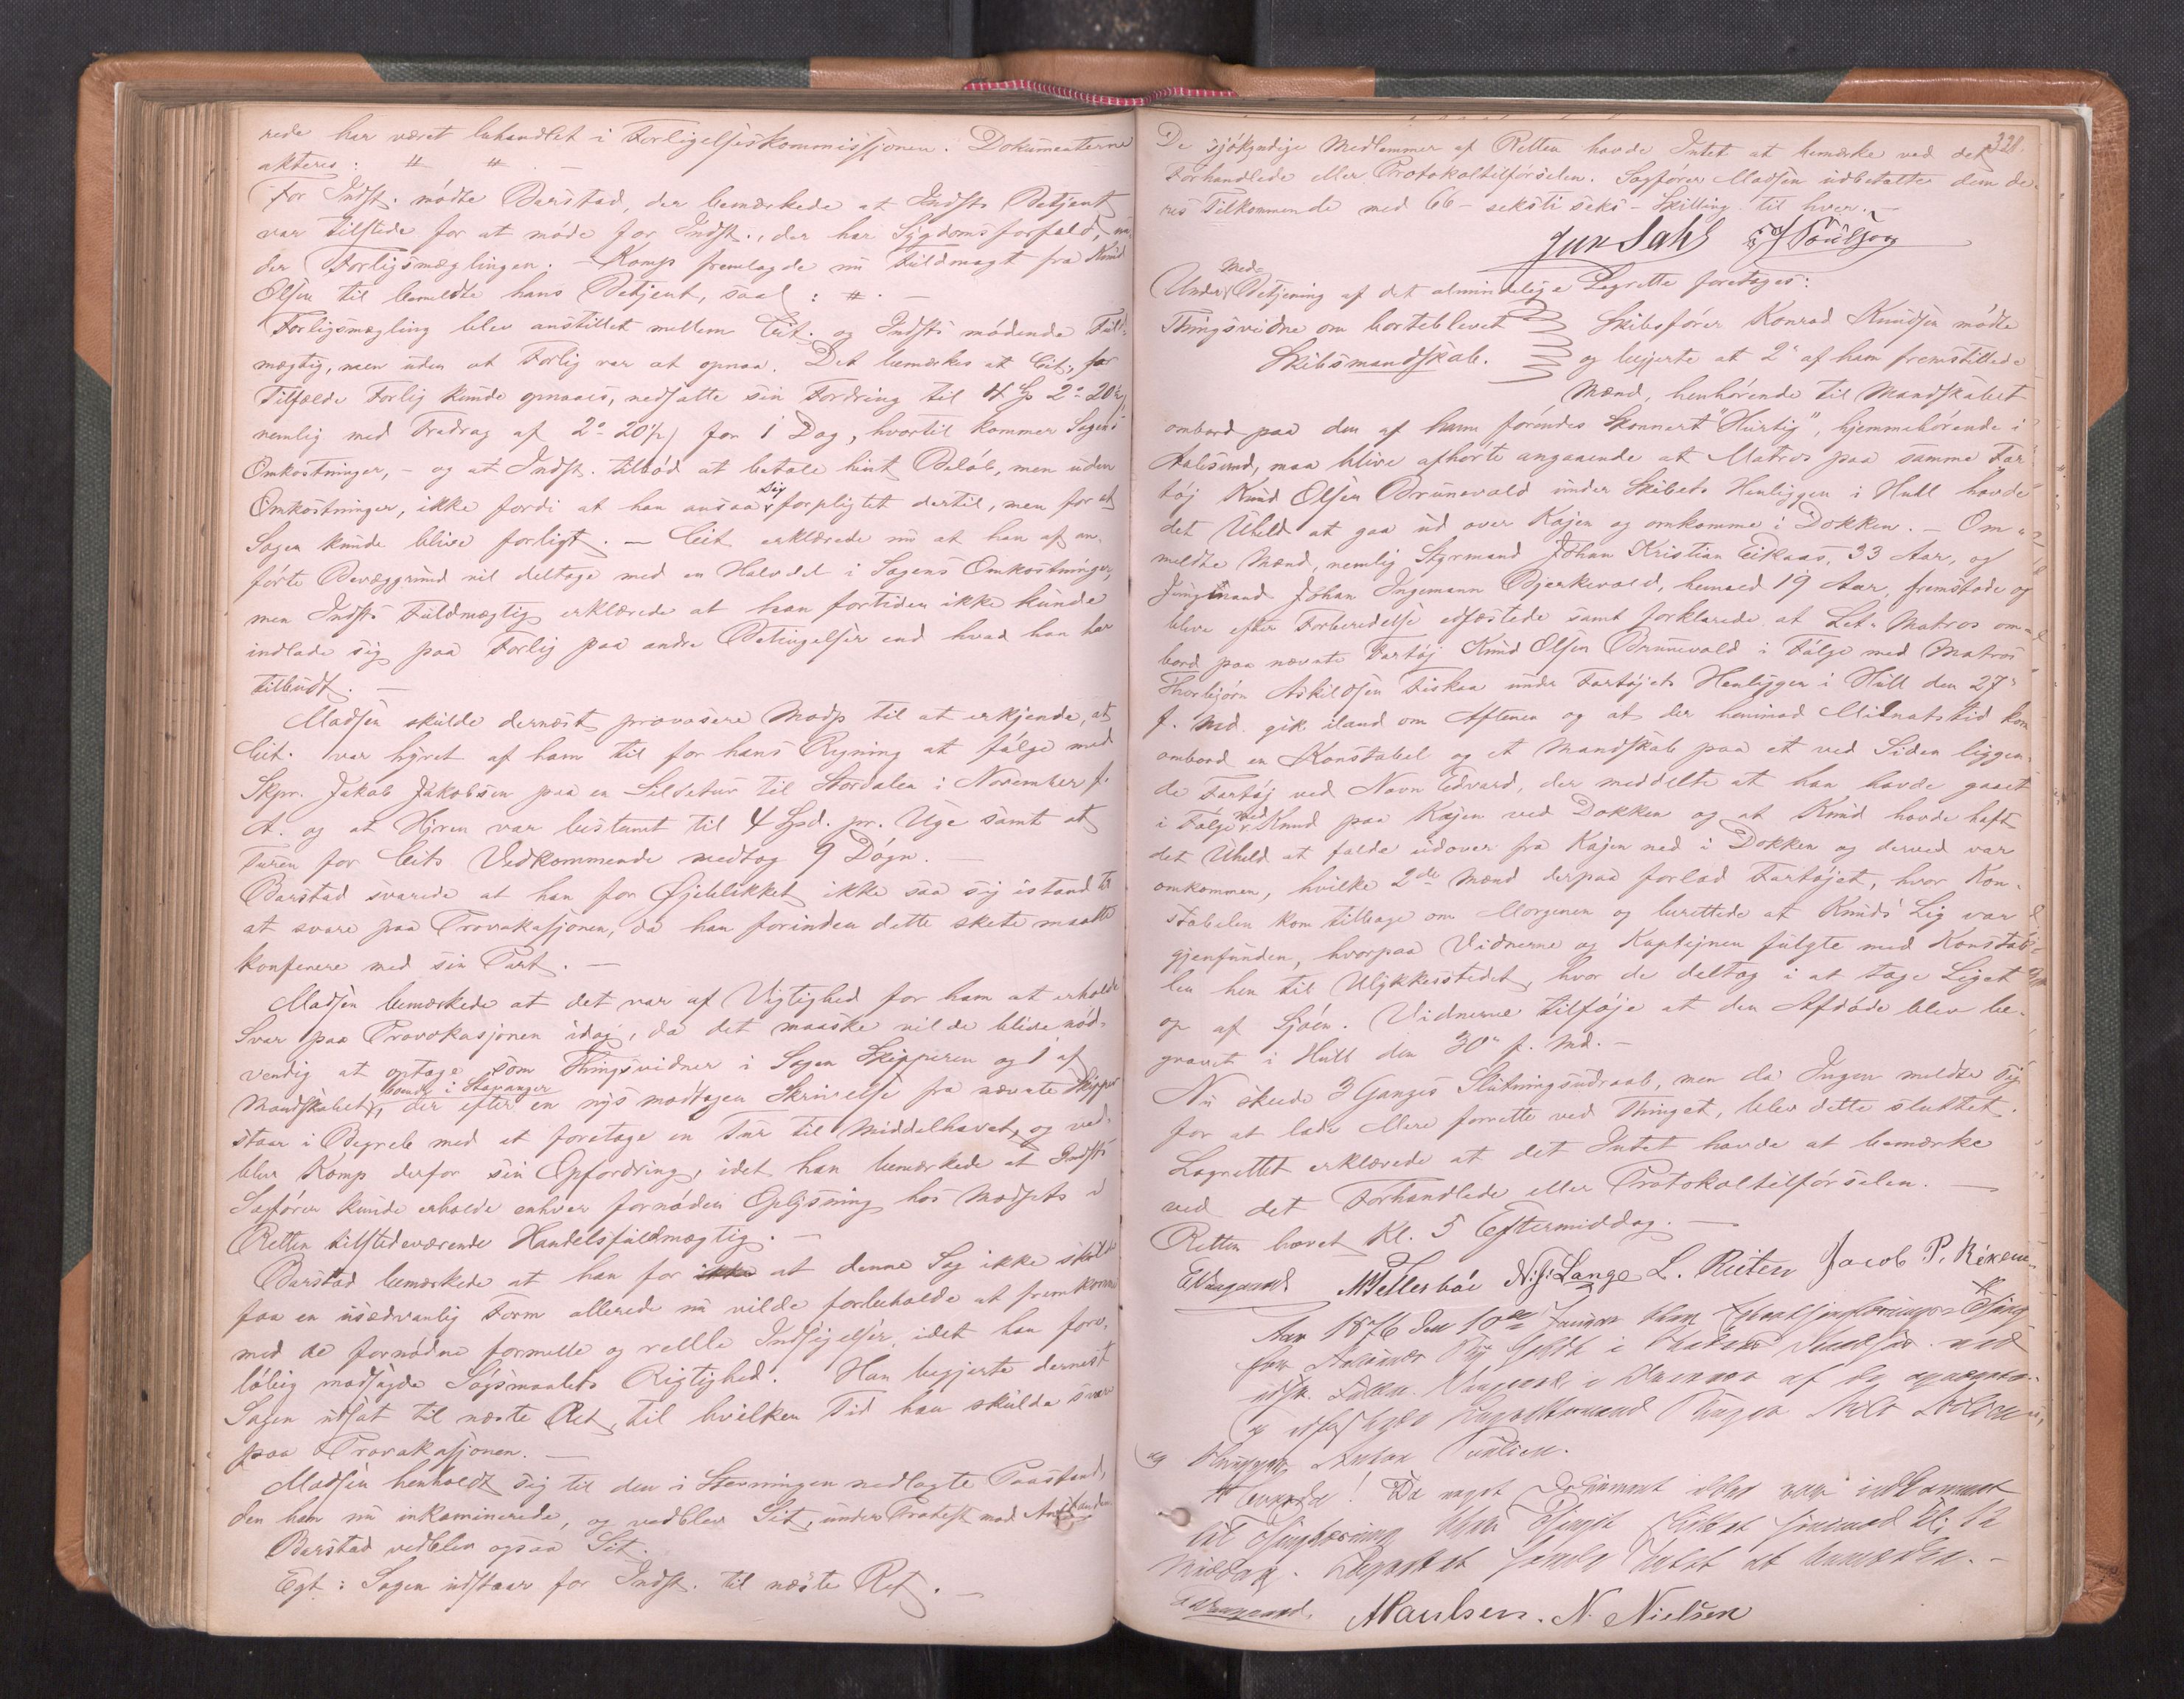 rede har været behandlet i Forligelseskommissjonen. Dokumenterne
akteres: # # –
For Indst. mødte Barstad, der bemærkede at Indsts Betjent
var tilstede for at møde for Indst., der har Sygdomsforfald, un-
der Forligsmæglingen. – Komp fremlagde nu Fuldmagt fra Knud
Olsen til bemeldte hans Betjent, saal: #. –
Forligsmægling blev anstillet mellem Cit. og Indsts mødende Fuld-
mægtig, men uden at Forlig var at opnaa. Det bemærkes at Cit. for
Tilfælde Forlig kunde opnaaes, nedsatte sin Fordring til 4 Sp 2 20
nemlig med Fradrag af 2 20 for 1 Dag, hvortil kommer Sagens
Omkostninger, – og at Indst. tilbød at betale hint Beløb, men uden
Omkostninger, ikke fordi at han ansaa sig forpligtet dertil, men for at
Sagen kunde blive forligt. – Cit erklærede nu at han af an-
førte Bevæggrund vil deltage med en Halvdel i Sagens Omkostninger,
men Indsts Fuldmægtig erklærede at han fortiden ikke kunde
indlade sig paa Forlig paa andre Betingelser end hvad han har
tilbudt. –
Madsen skulde dernæst provosere Modp til at erkjende, at
Cit. var hyret af ham til for hans Regning at følge med
Skpr. Jakob Jakobsen paa en Sildetur til Stordalen i November f.
A. og at Hyren var bestemt til 4 Spd. pr. Uge samt at
Turen for Cits Vedkommende medtog 9 Døgn.
Barstad svarede at han for Øjeblikket ikke saa sig istand til
at svare paa Provokasjonen, da han forinden dette skete maatte
konferere med sin Part. –
Madsen bemærkede at det var af Vigtighed for ham at erholde
Svar paa Provokasjonen idag, da det maaske vilde blive nød-
vendig at optage som Thingsvidner i Sagen Skipperen og 1 af
Mandskabet, boende i Stavanger der efter en nys modtagen Skrivelse fra nævnte Skipper
staar i Begreb med at foretage en Tur til Middelhavet, og ved-
blev Komp derfor sin Opfordring, idet han bemærkede at Indsts
Sagfører kunde erholde enhver fornøden Oplysning hos Modpts i
Retten tilstedeværende Handelsfuldmægtig. –
Barstad bemærkede at han for ikke at denne Sag ikke skulde
faa en usædvanlig Form allerede nu vilde forbeholde at fremkomme
med de fornødne formelle og reelle Indsigelser, idet han fore-
løbig modsagde Søgsmaalets Rigtighed. Han begjerte dernest
Sagen udsat til næste Ret, til hvilken Tid han skulde svare
paa Provokasjonen. –
Madsen henholdt sig til den i Stevningen nedlagte Paastand,
den han nu inkaminerede, og vedblev Sit, under Protest mod Anstanden
Barstad vedblev ogsaa Sit.
Egt: Sagen udstaar for Indst. til næste Ret. –
328.
De sjøkyndige Medlemmer af Retten havde Intet at bemærke ved det
Forhandlede eller Protokoltilførselen. Sagfører Madsen udbetalte dem de-
res Tilkommende med 66 – seksti seks – Skilling til hver. –
Jux Dahl Poulsen
Under Med- Betjening af det almindelige Lagrette foretoges:
Thingsvidne om borteblevet
Skibsmandskab.
Skibsfører Konrad Knudsen mødte
og begjerte at 2 af ham fremstillede
Mænd, henhørende til Mandskabet
ombord paa den af ham førendes Skonnert "Hurtig", hjemmehørende i
Aalesund, maa blive afhørte angaaende at Matros paa samme Far-
tøj Knud Olsen Brunevold under Skibets Henliggen i Hull havde
det Uheld at gaa ud over Kajen og omkomme i Dokken. – Om-
meldte Mænd, nemlig Styrmand Johan Kristian Eikaas, 33 Aar, og
Jungmand Johan Ingemann Bjerkevold, hemved 19 Aar, fremstode og
bleve efter Forberedelse edfæstede samt forklarede at Let- Matros om-
bord paa nævnte Fartøj Knud Olsen Brunevold i Følge med Matros
Thorbjørn Askildsen Fiskaa under Fartøjets Henliggen i Hull den 27
f. Md. gik iland om Aftenen og at der henimod Midnatstid kom
ombord en Konstabel og et Mandskab paa et ved Siden liggen-
de Fartøj ved Navn Edvard, der meddelte at han havde gaaet
i Følge med Knud paa Kajen ved Dokken og at Knud havde haft
det Uheld at falde udover fra Kajen ned i Dokken og derved var
omkommen, hvilke 2de Mænd derpaa forlod Fartøjet, hvor Kon-
stabelen kom tilbage om Morgenen og berettede at Knuds Lig var
gjenfunden, hvorpaa Vidnerne og Kaptejnen fulgte med Konstabe-
len hen til Ulykkesstedet, hvor de deltog i at tage Liget
op af Sjøen. Vidnerne tilføje at den Afdøde blev be-
gravet i Hull den 30 f. Md. –
Nu skede 3 Ganges Slutningsudraab, men da Ingen meldte sig
for at lade Mere forrette ved Thinget, blev dette sluttet.
Lagrettet erklærede at det Intet havde at bemærke
ved det Forhandlede eller Protokoltilførselen. –
Retten hævet Kl. 5 Eftermiddag. –
N. J. Lange L. Rieten Jacob P.
Aar 1876 den 10de Januar blev
for Aalesunds By holdt i
af
og Anton Poulsen.
! Da noget Dokument ikke var indkommet
til Thinglæsning blev Thinget sluttet henimod Kl. 12
Middag. Lagrettet havde Intet at bemærke. –
APaulsen. N. Nielsen